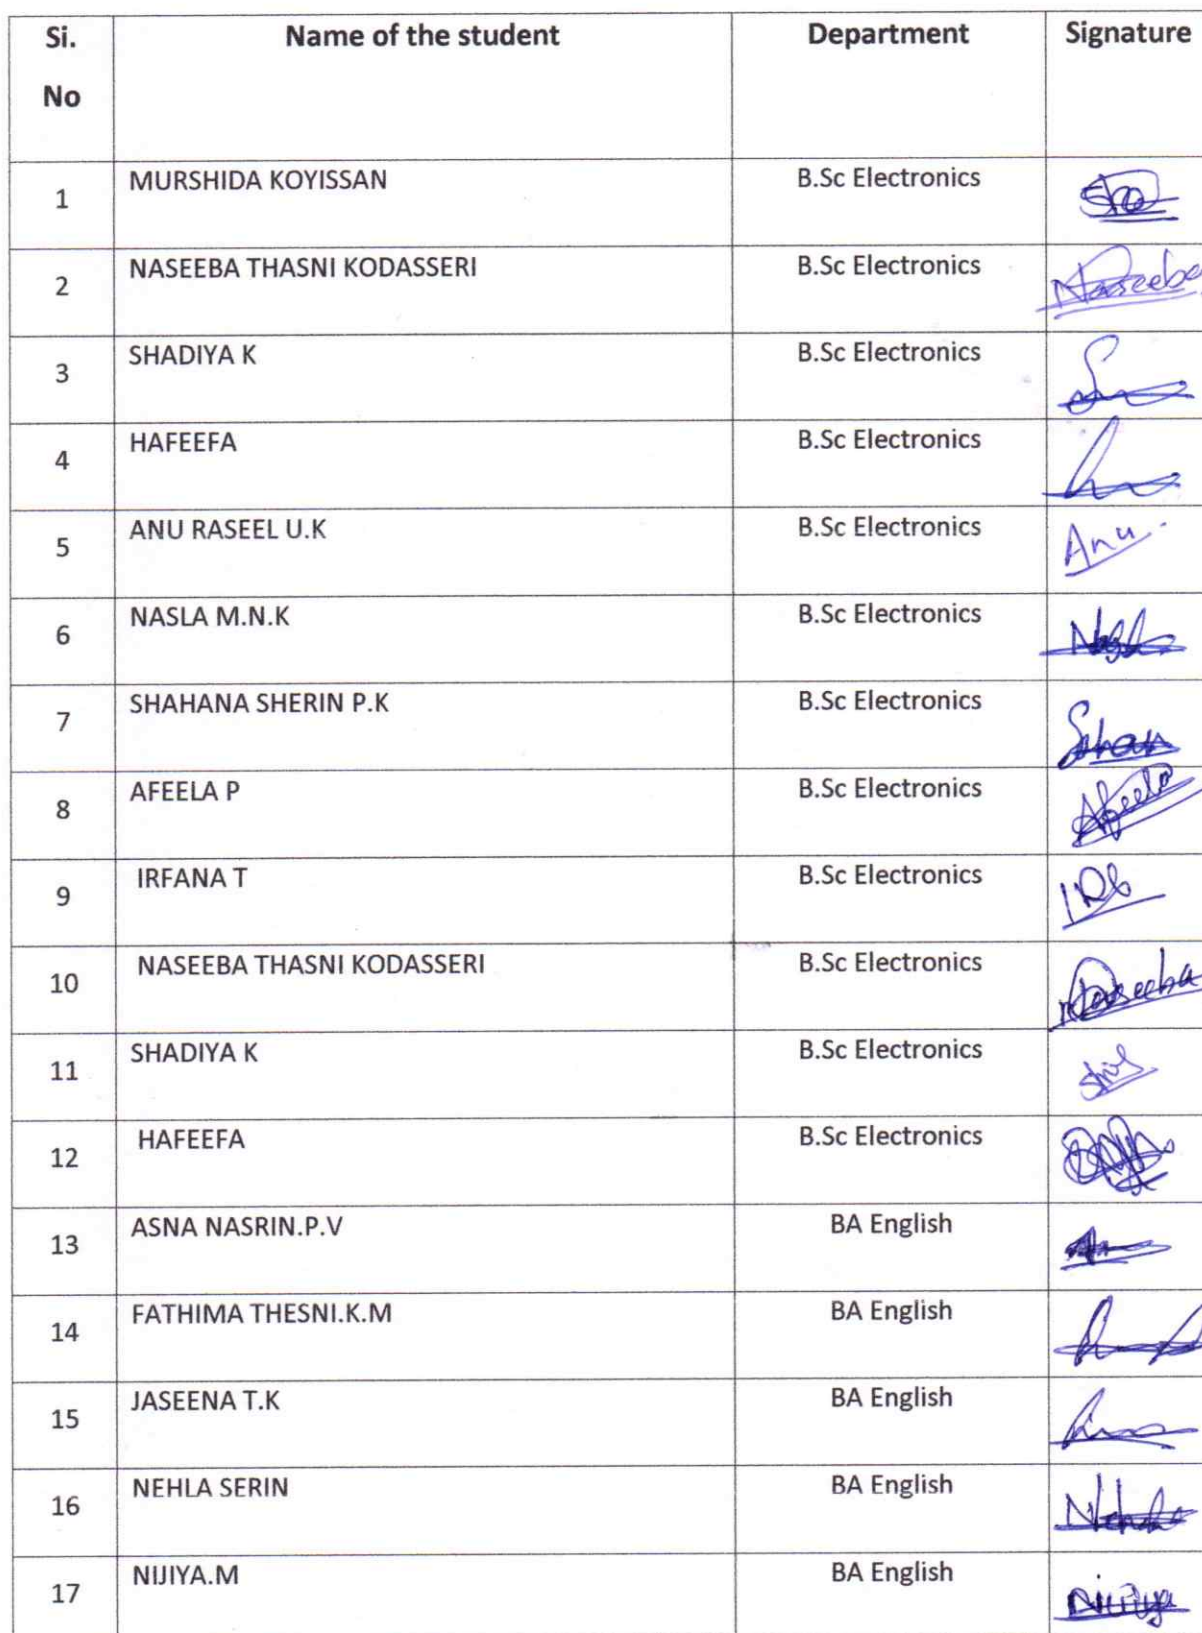 Si. No Name of the student Department Signature
1 MURSHIDA KOYISSAN B.Sc Electronics
2 NASEEBA THASNI KODASSERI B.Sc Electronics Naseeba
3 SHADIYA K B.Sc Electronics
4 HAFEEFA B.Sc Electronics
5 ANU RASEEL U.K B.Sc Electronics Anu
6 NASLA M.N.K B.Sc Electronics
7 SHAHANA SHERIN P.K B.Sc Electronics
8 AFEELA P B.Sc Electronics Afeela
9 IRFANA T B.Sc Electronics
10 NASEEBA THASNI KODASSERI B.Sc Electronics Naseeba
11 SHADIYA K B.Sc Electronics
12 HAFEEFA B.Sc Electronics
13 ASNA NASRIN.P.V BA English
14 FATHIMA THESNI.K.M BA English
15 JASEENA T.K BA English
16 NEHLA SERIN BA English
17 NIJIYA.M BA English